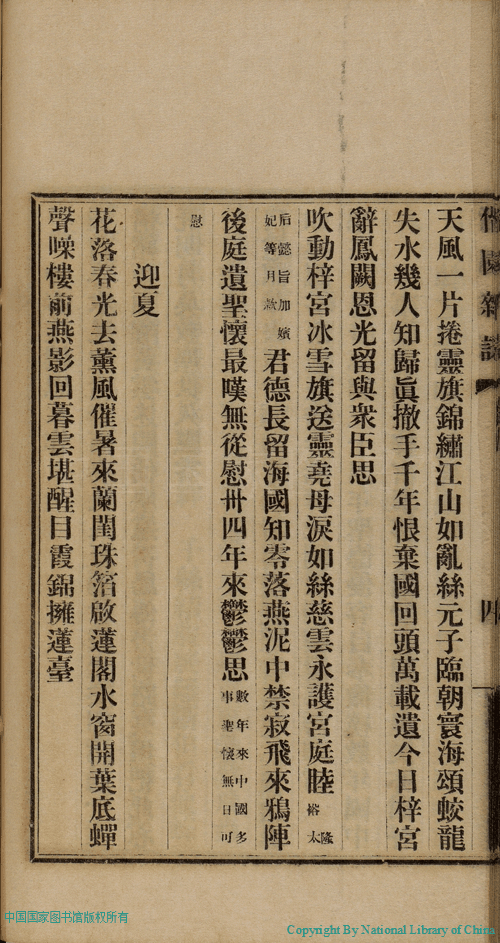 偕園雜詠
四
天風一片捲靈旗錦繡江山如亂絲元子臨朝寰海頌蛟龍
失水幾人知歸眞撤手千年恨棄國回頭萬載遺今日梓宮
辭鳳闕恩光留與衆臣思
吹動梓宮冰雪旗送靈堯母淚如絲慈雲永護宮庭睦隆裕太
后懿旨加嬪妃等月款君德長留海國知零落燕泥中禁寂飛來鴉陣
後庭遺聖懷最嘆無從慰卅四年來鬱鬱思數年來中國多事聖懷無日可
慰
迎夏
花落春光去薰風催暑來蘭閨珠箔啟蓮閣水窗開葉底蟬
聲噪樓前燕影回暮雲堪醒目霞錦擁蓮臺
中国国家图书馆版权所有
Copyright By National Library of China